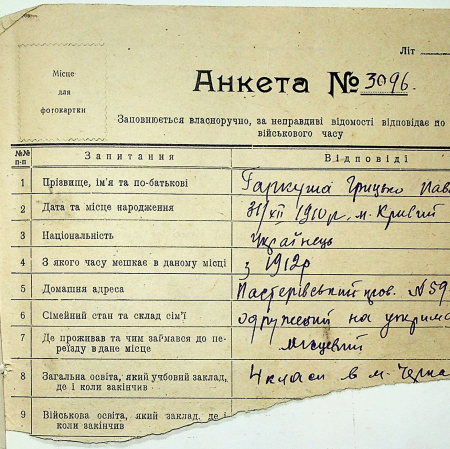 Літ
Місце
для
фотокартки
Анкета № 3096.
Заповнюється власноручно, за неправдиві відомості відповідає по
військового часу
№№ п-п Запитання Відповіді
1 Прізвище, ім'я та по-батькові Гаркуша Грицько Пав
2 Дата та місце народження 31/XII 1910 р. м. Кривий
3 Національність Українець
4 З якого часу мешкає в даному місці з 1912 р
5 Домашня адреса Пастерівський пров. № 59
6 Сімейний стан та склад сім'ї одружений на
7 Де проживав та чим займався до пе-
реїзду в дане місце Місцевий
8 Загальна освіта, який учбовий заклад,
де і коли закінчив 4 класи в м. Черка
9 Військова освіта, який заклад, де і
коли закінчив